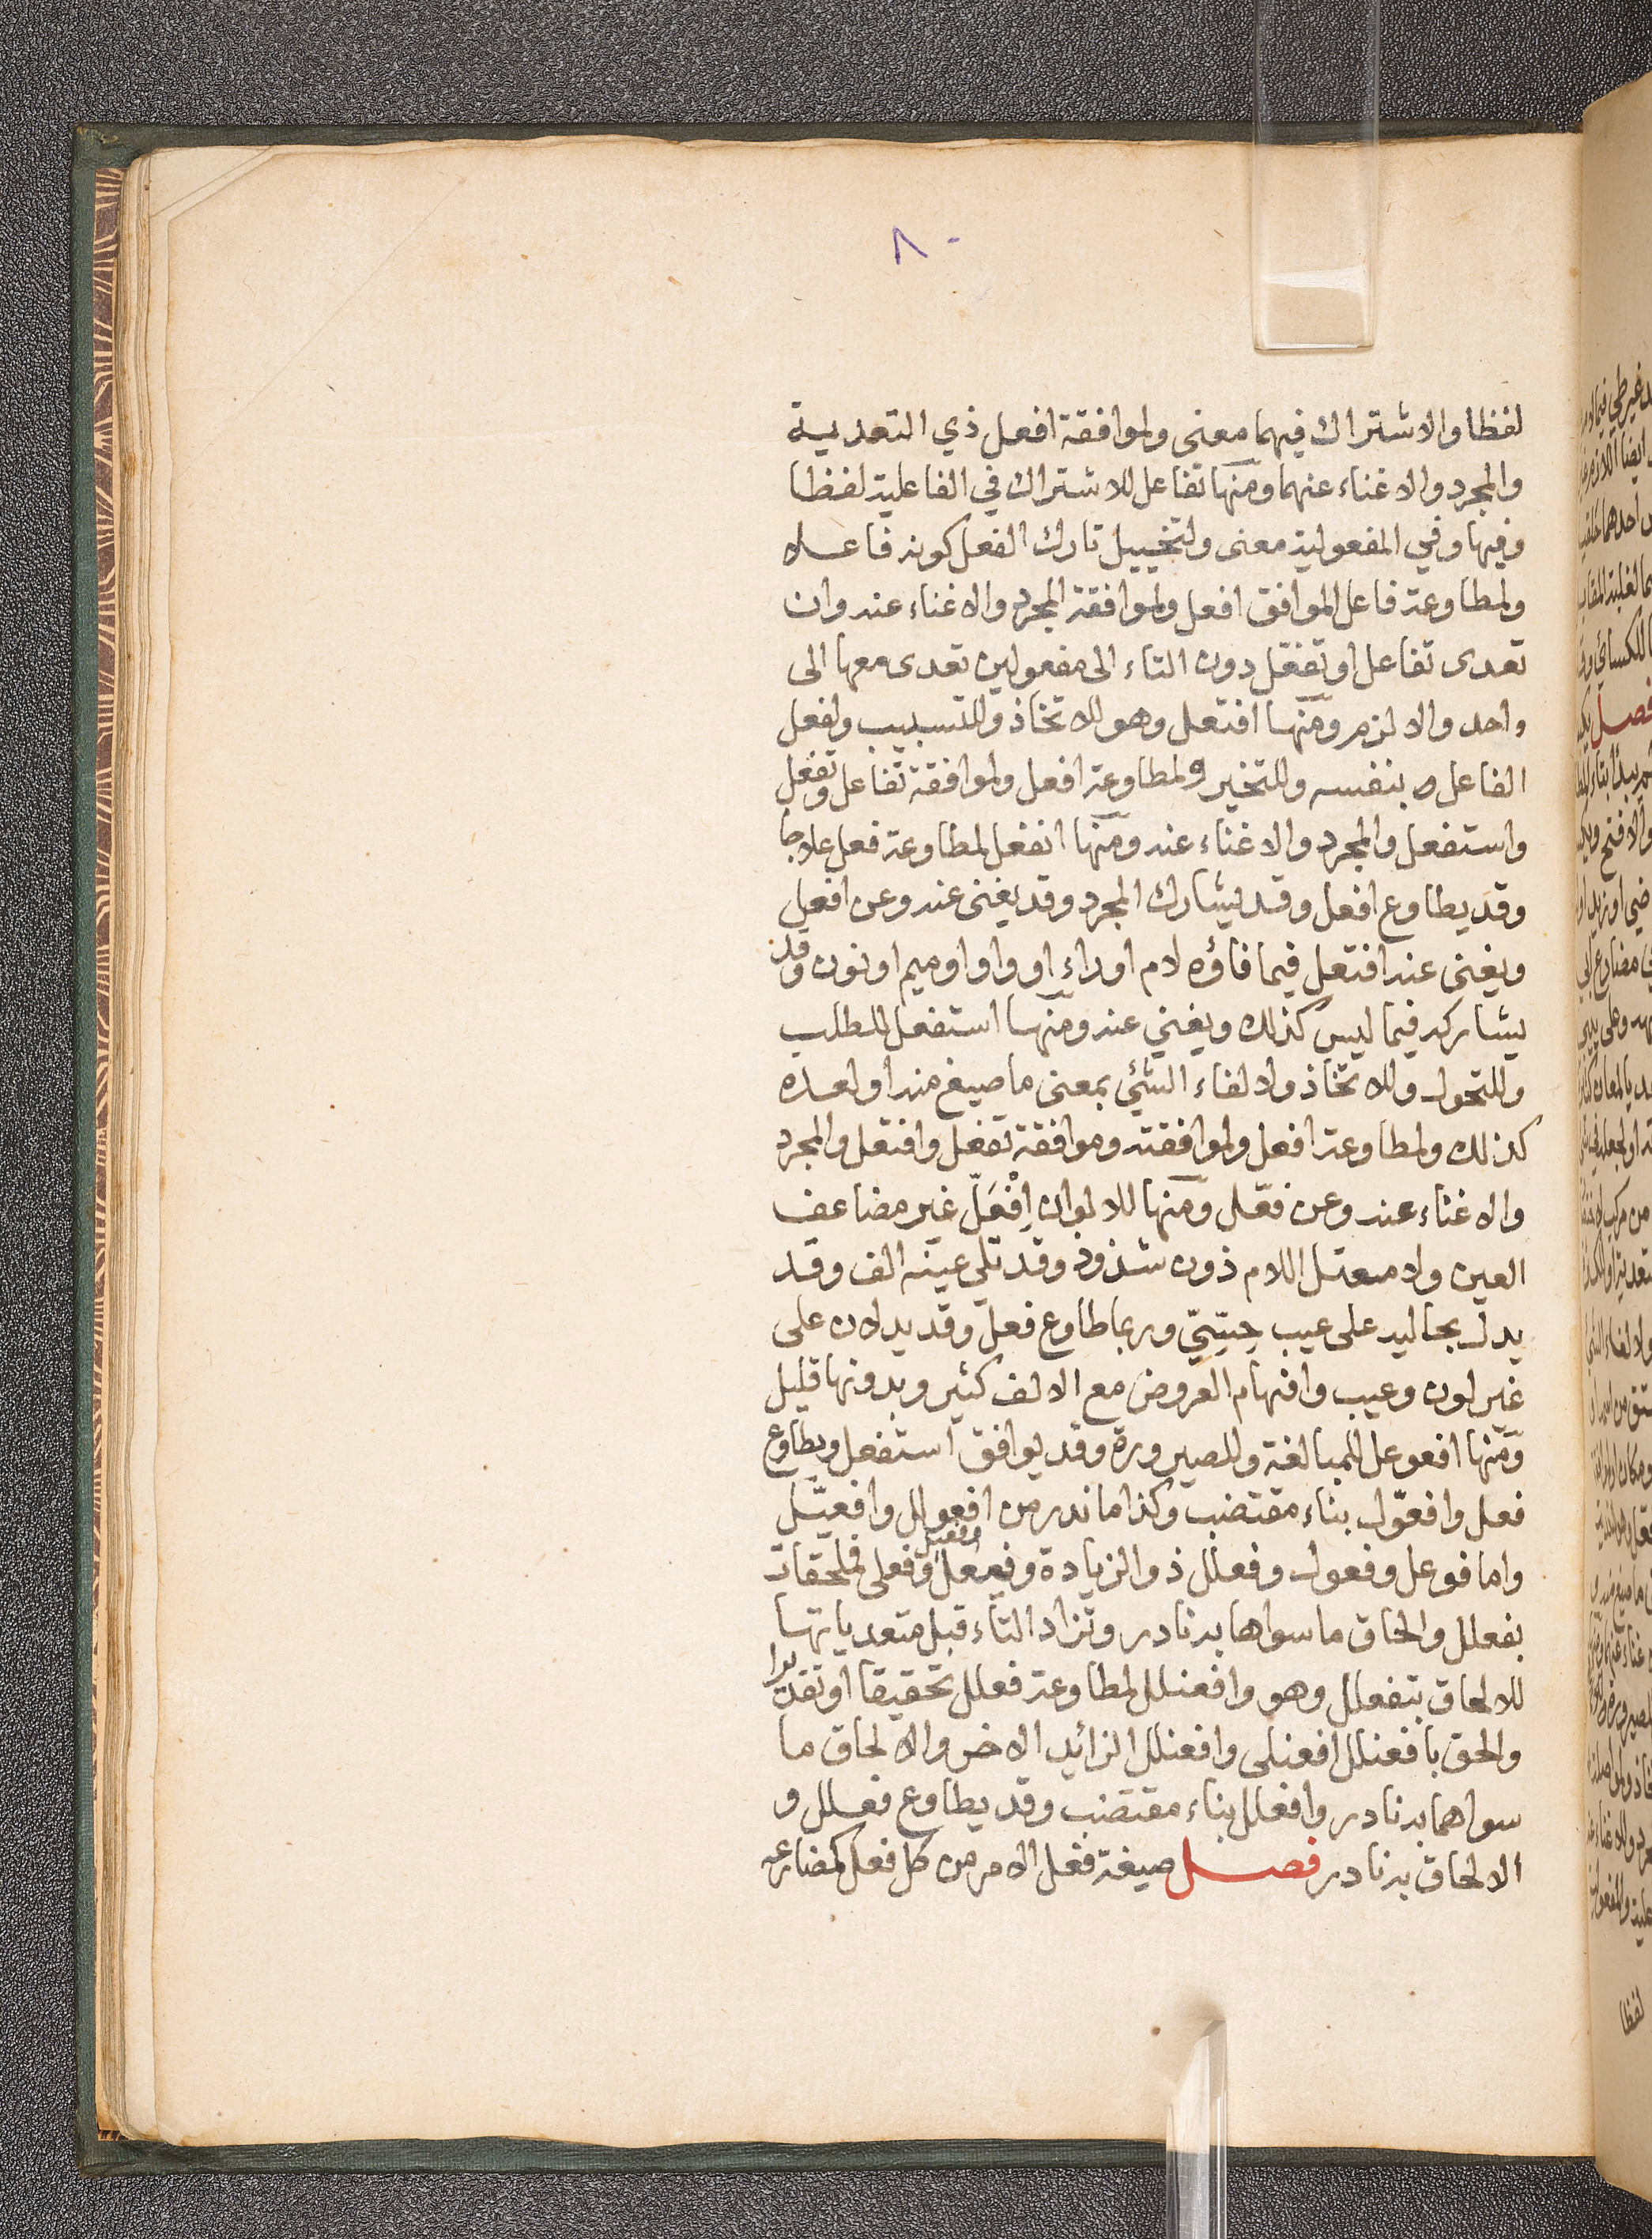 ٨٠
لفظا والاشتراك فيهما معنى ولموافقة افعل ذي التعدية
والمجرد والاغناء عنهما ومنها تفاعل للاشتراك في الفاعلية لفظا
وفيها وفي المفعولية معنى ولتخييل تارك الفعل كونه فاعلا
ولمطاوعة فاعل الموافق افعل ولموافقة المجرد والاغناء عنه وان
تعدى تفاعل او تفعّل دون التاء الى مفعولين تعدى معها الى
واحد والا لزم ومنها افتعل وهو للاتخاذ وللتسبيب ولفعل
الفاعل بنفسه وللتخير ولمطاوعة افعل ولموافقة تفاعل وتفعل
واستفعل والمجرد والاغناء عنه ومنها انفعل لمطاوعة فعل علاجا
وقد يطاوع افعل وقد يشارك المجرد وقد يغنى عنه وعن افعل
ويغنى عنه افتعل فيما فاؤه لام او راء او واو او ميم او نون وقد
يشاركه فيما ليس كذلك ويغني عنه ومنها استفعل للطلب
وللتحول وللاتخاذ ولالفاء الشئي بمعنى ما صيغ منه او لعده
كذلك ولمطاوعة افعل ولموافقته وموافقة تفعل وافتعل والمجرد
والاغناء عنه وعن فعّل ومنها للالوان اِفْعَلّ غير مضاعف
العين ولا معتل اللام دون شذوذ وقد تلي عينه الف وقد
يدل بحاليه على عيب حِسّيّ وربما طاوع فعل وقد يدلان على
غير لون وعيب وافهام العروض مع الالف كثير وبدونها قليل
ومنها افعوعل للمبالغة وللصيرورة وقد يوافق استفعل ويطاوع
فعل وافعوّل بناء مقتضب وكذا ما ندر من افعولل وافعيّل
واما فوعل وفعول وفعلل ذو الزيادة وفيعل وفعيل وفعلى فملحقات
بفعلل والحاق ما سواها به نادر وتزاد التاء قبل متعدياتها
للالحاق بتفعلل وهو وافعنلل لمطاوعة فعلل تحقيقا او تقديرا
والحق بافعنلل افعنلى وافعنلل الزائد الاخر والالحاق ما
سواهما به نادر وافعلل بناء مقتضب وقد يطاوع فعلل و
الالحاق به نادر فصل صيغة فعل الامر من كل فعل كمضارعه